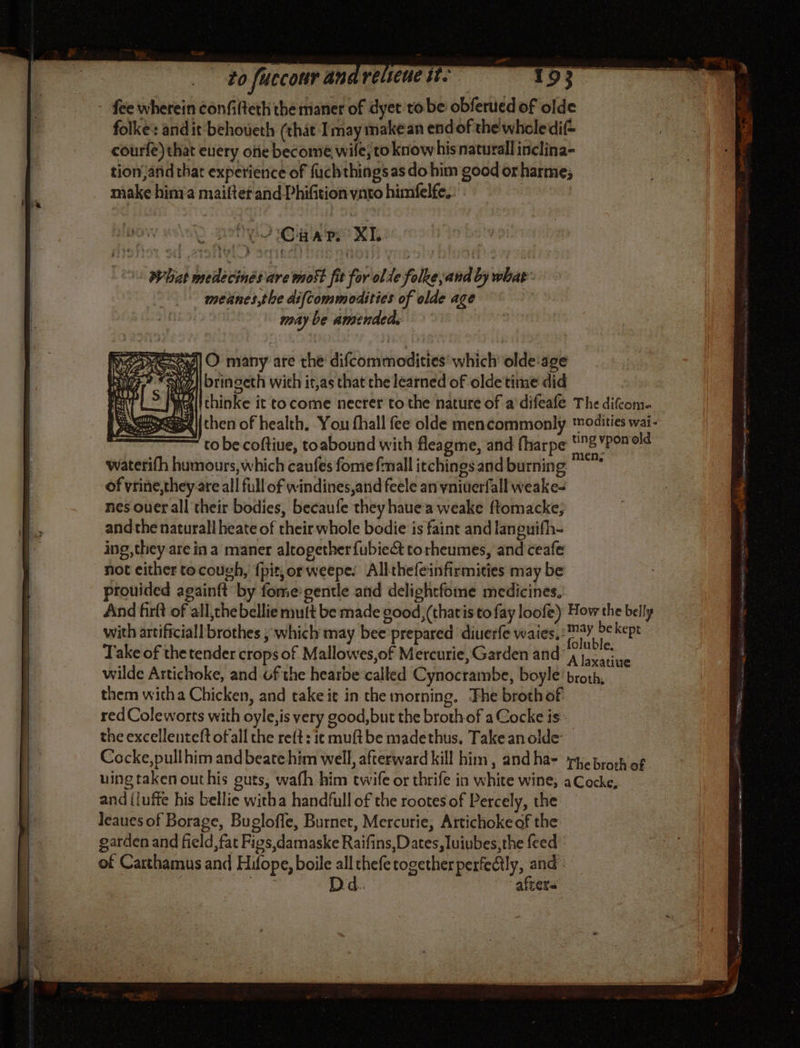 to ſuccour and relieue it. 193
ſee wherein conſiſteth the maner of dyet to be obſerued of olde
folke: and it behoueth (that I may make an end of the whole diſ-
courſe) that euery one become wiſe, to know his naturall inclina-
tion, and that experience of ſuch things as do him good or harme,
make him a maiſter and Phiſition vnto himſelfe.
CHAP. XI.
What medecines are most fit for olde folke, and by what
meanes, the diſcommodities of olde age
may be amended.
SO many are the diſcommodities which olde age
bringeth with it, as that the learned of olde time did
thinke it to come neerer to the nature of a diſeaſe
then of health. You ſhall ſee olde men commonly
to be coſtiue, to abound with fleagme, and ſharpe
The diſcom-
modities wai-
ting vpon old
men.
wateriſh humours, which cauſes ſome ſmall itchings and burning
of vrine, they are all full of windines, and feele an vniuerſall weake-
nes ouer all their bodies, becauſe they haue a weake ſtomacke,
and the naturall heate of their whole bodie is faint and languiſh-
ing, they are in a maner altogether ſubiect to rheumes, and ceaſe
not either to cough, ſpit, or weepe. All theſe infirmities may be
prouided againſt by ſome gentle and delightſome medicines.
And firſt of all, the bellie muſt be made good, (that is to ſay looſe)
with artificiall brothes, which may bee prepared diuerſe waies.
How the belly
may be kept
ſoluble.
Take of the tender crops of Mallowes, of Mercurie, Garden and
wilde Artichoke, and of the hearbe called Cynocrambe, boyle
A laxatiue
broth.
them with a Chicken, and take it in the morning. The broth of
red Coleworts with oyle, is very good, but the broth of a Cocke is
the excellenteſt of all the reſt: it muſt be made thus. Take an olde
Cocke, pull him and beate him well, afterward kill him, and ha-
uing taken out his guts, waſh him twiſe or thriſe in white wine,
The broth of
a Cocke.
and ſtuffe his bellie with a handfull of the rootes of Percely, the
leaues of Borage, Bugloſſe, Burnet, Mercurie, Artichoke of the
garden and field, fat Figs, damaske Raiſins, Dates, Iuiubes, the ſeed
of Carthamus and Hiſope, boile all theſe together perfectly, and
Dd. after-